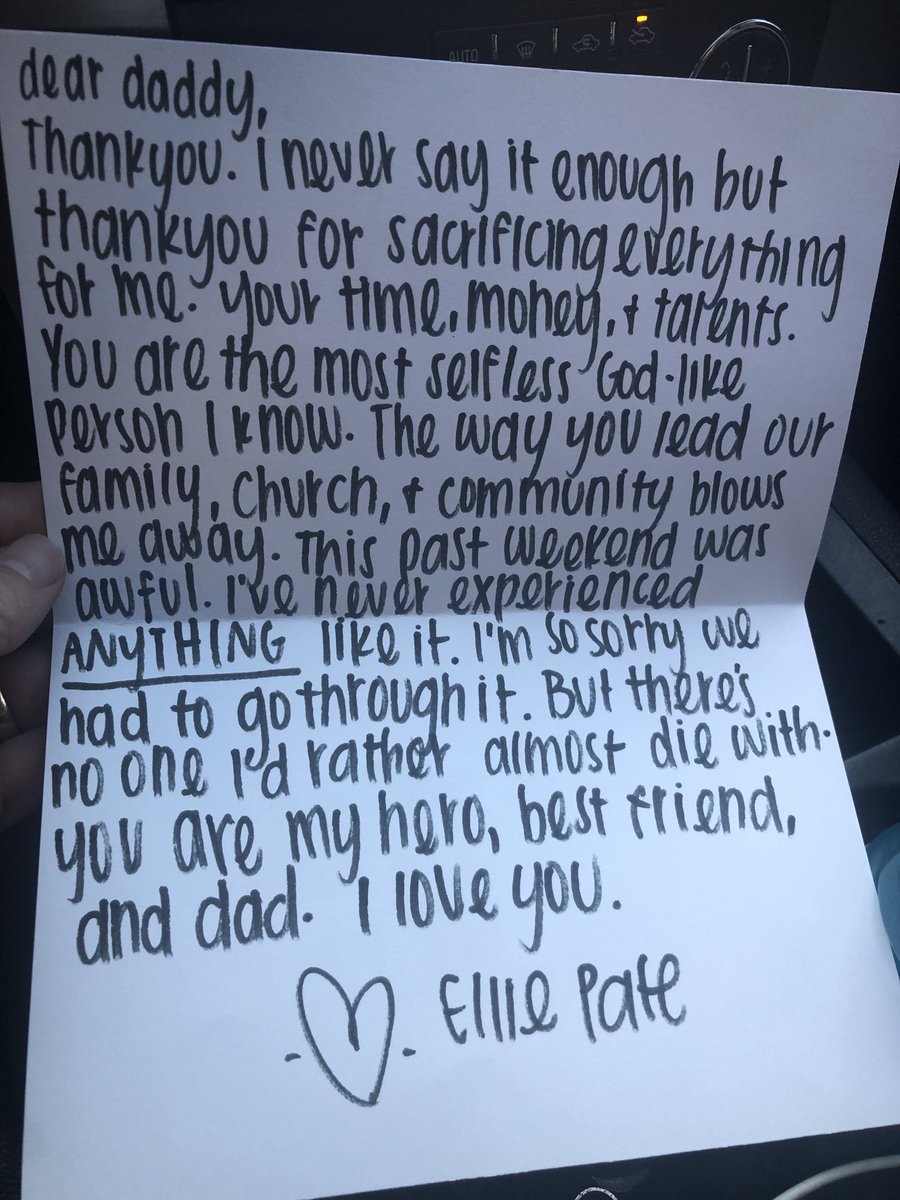 AUTO
dear daddy,
Thankyou. i never say it enough but
thankyou for sacrificing everything
for me. your time, money, & talents.
You are the most selfless God-like
person I know. The way you lead our
family, church, & community blows
me away. This past weekend was
awful. I've never experienced
ANYTHING like it. I'm so sorry we
had to go through it. But there's
no one I'd rather almost die with.
you are my hero, best friend,
and dad. I love you.
Ellie Pate